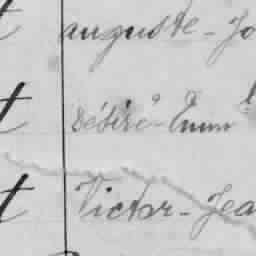 auguste - Jo
désiré - Emm^l
Victor - Jea